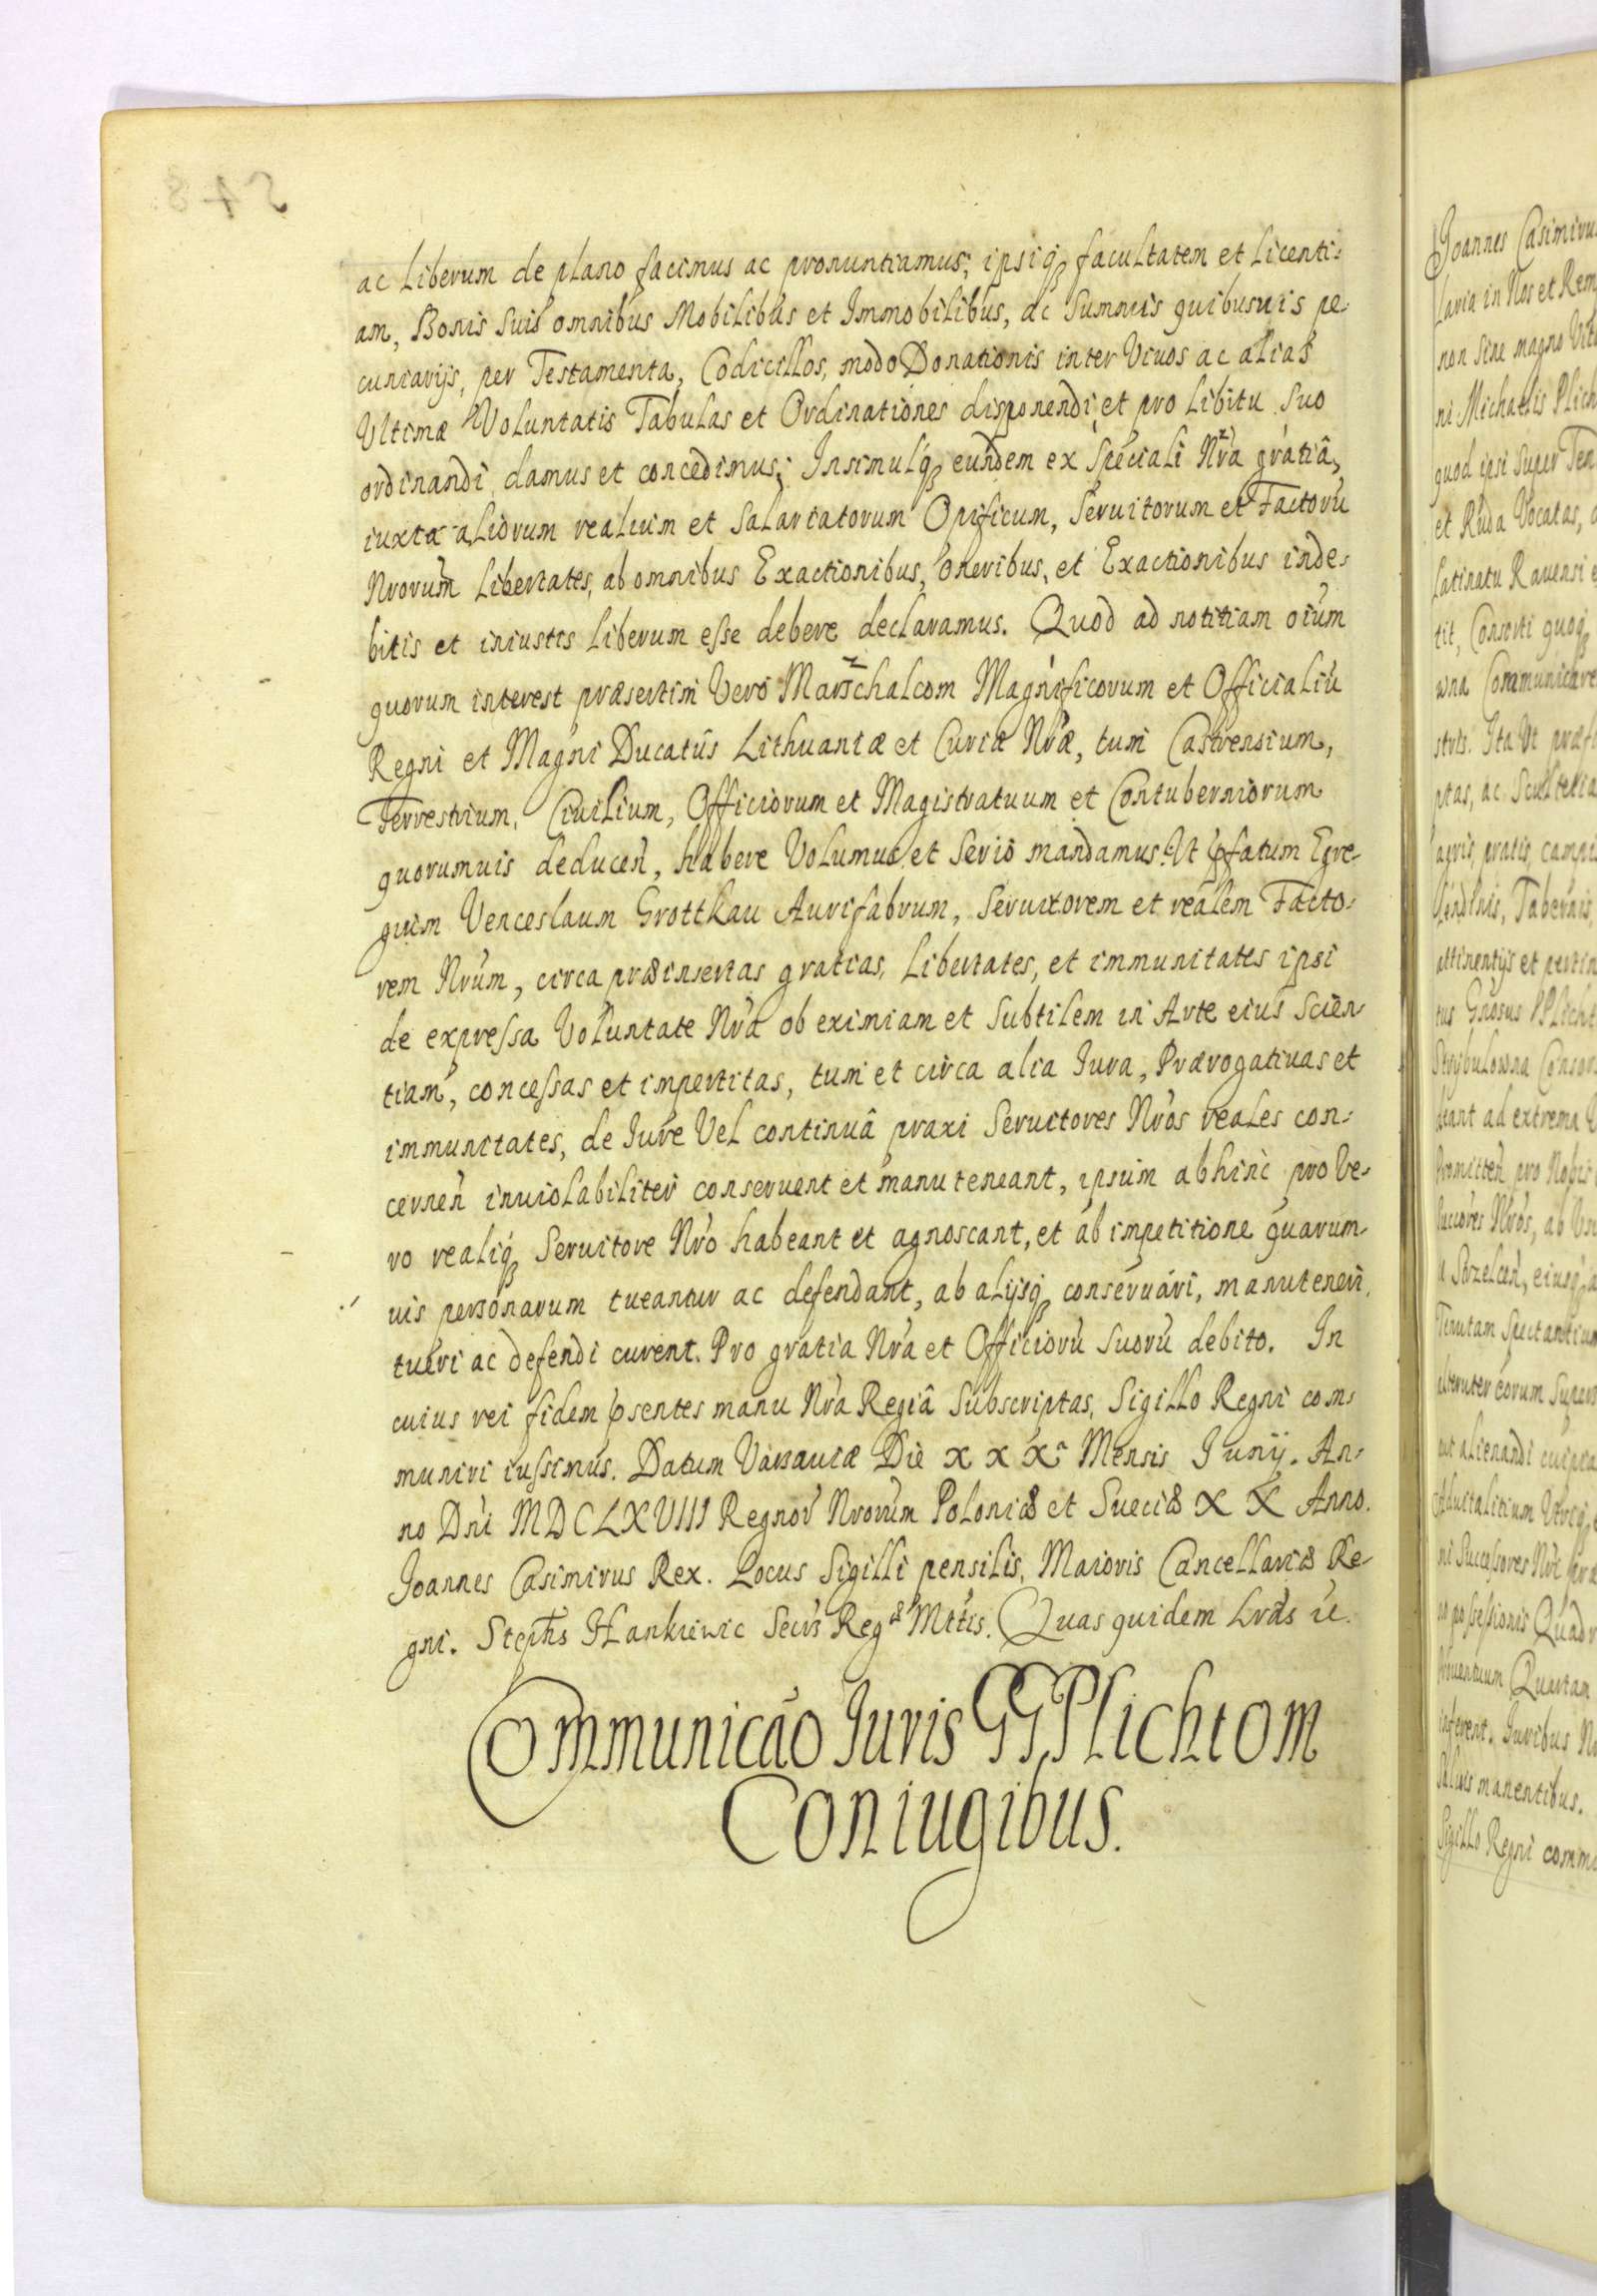 ac liberum de plano facimus ac pronuntiamus; ipsiq́ facultatem et licenti-
am, Bonis suis omnibus Mobilibus et Immobilibus, ac Summis quibusuis pe-
cuniarijs, per Testamenta, Codicillos, modo Donationis inter Viuos ac alias
Vltimæ Voluntatis Tabulas et Ordinationes disponendi et pro libitu suo
ordinandi damus et concedimus; Insimulq́ eundem ex speciali Nr̃a gratiâ,
iuxta aliorum realium et salariatorum Opificum, Seruitorum et Factorũ
Nrorum libertates, ab omnibus Exactionibus, oneribus, et Exactionibus inde-
bitis et iniustis liberum esse debere declaramus. Quod ad notitiam oium
quorum interest præsertim Vero Marschalcorum Magnificorum et Officialiũ
Regni et Magni Ducatûs Lithuaniæ et Curiæ Nræ, tum Castrensium,
Terrestrium, Ciuilium, Officiorum et Magistratuum et Contuberniorum
quorumuis deducen̄, habere Volumus et serio mandamus. Ut p̱fatum Egre-
gium Venceslaum Grottkau Aurifabrum, Seruitorem et realem Facto-
rem Nrum, circa præinsertas gratias, libertates, et immunitates ipsi
de expressa Voluntate Nra ob eximiam et subtilem in Arte eius scien-
tiam, concessas et impertitas, tum et circa alia Iura, Prærogatiuas et
immunitates, de Iure Vel continuâ praxi Seruitores Nros reales con-
cernen̄ inuiolabiliter conseruent et manuteneant, ipsum abhinc pro Ve-
ro realiq́ Seruitore Nro habeant et agnoscant, et ab impetitione quarum-
uis personarum tueantur ac defendant, ab alijsq́ conseruari, manuteneri,
tueri ac defendi curent. Pro gratia Nra et Officiorũ suorũ debito. In
cuius rei fidem p̱sentes manu Nra Regiâ subscriptas, Sigillo Regni com-
muniri iussimus. Datum Varsauiæ Die XXXª Mensis Junij. An-
no Dni MDCLXVIII Regnor̃ Nrorum Poloniæ et Sueciæ XX Anno.
Joannes Casimirus Rex. Locus Sigilli pensilis, Maioris Cancellariæ Re-
gni. Stephs Hankiewic Secrs Regæ Mttis. Quas quidem Lras &c.
Communicão Iuris GG. Plichtom
Coniugibus.
Joannes Casimirus
laria in Nos et Rem
non sine magno
ni Michaelis Plich
quod ipsi super Ten
et Ruda Vocatas,
latinatu Rauensi
tit, Consorti quoq́
wna Communicare
stris. Ita Vt præf
ptas, ac Scultetia
agris, pratis, campis
Tabernis
attinentijs et pertin
tus Gnosus Plicht
Strybulowna Consor
ad extrema
Promitten̄ pro Nobis
Nros, ab
Tenutam spectantium
alteruter eorum super
aut alienandi
ni Successores Nri
possessionis Quadr
prouentuum Quartam
inferent. Iuribus
Saluis manentibus.
Sigillo Regni comm
548.